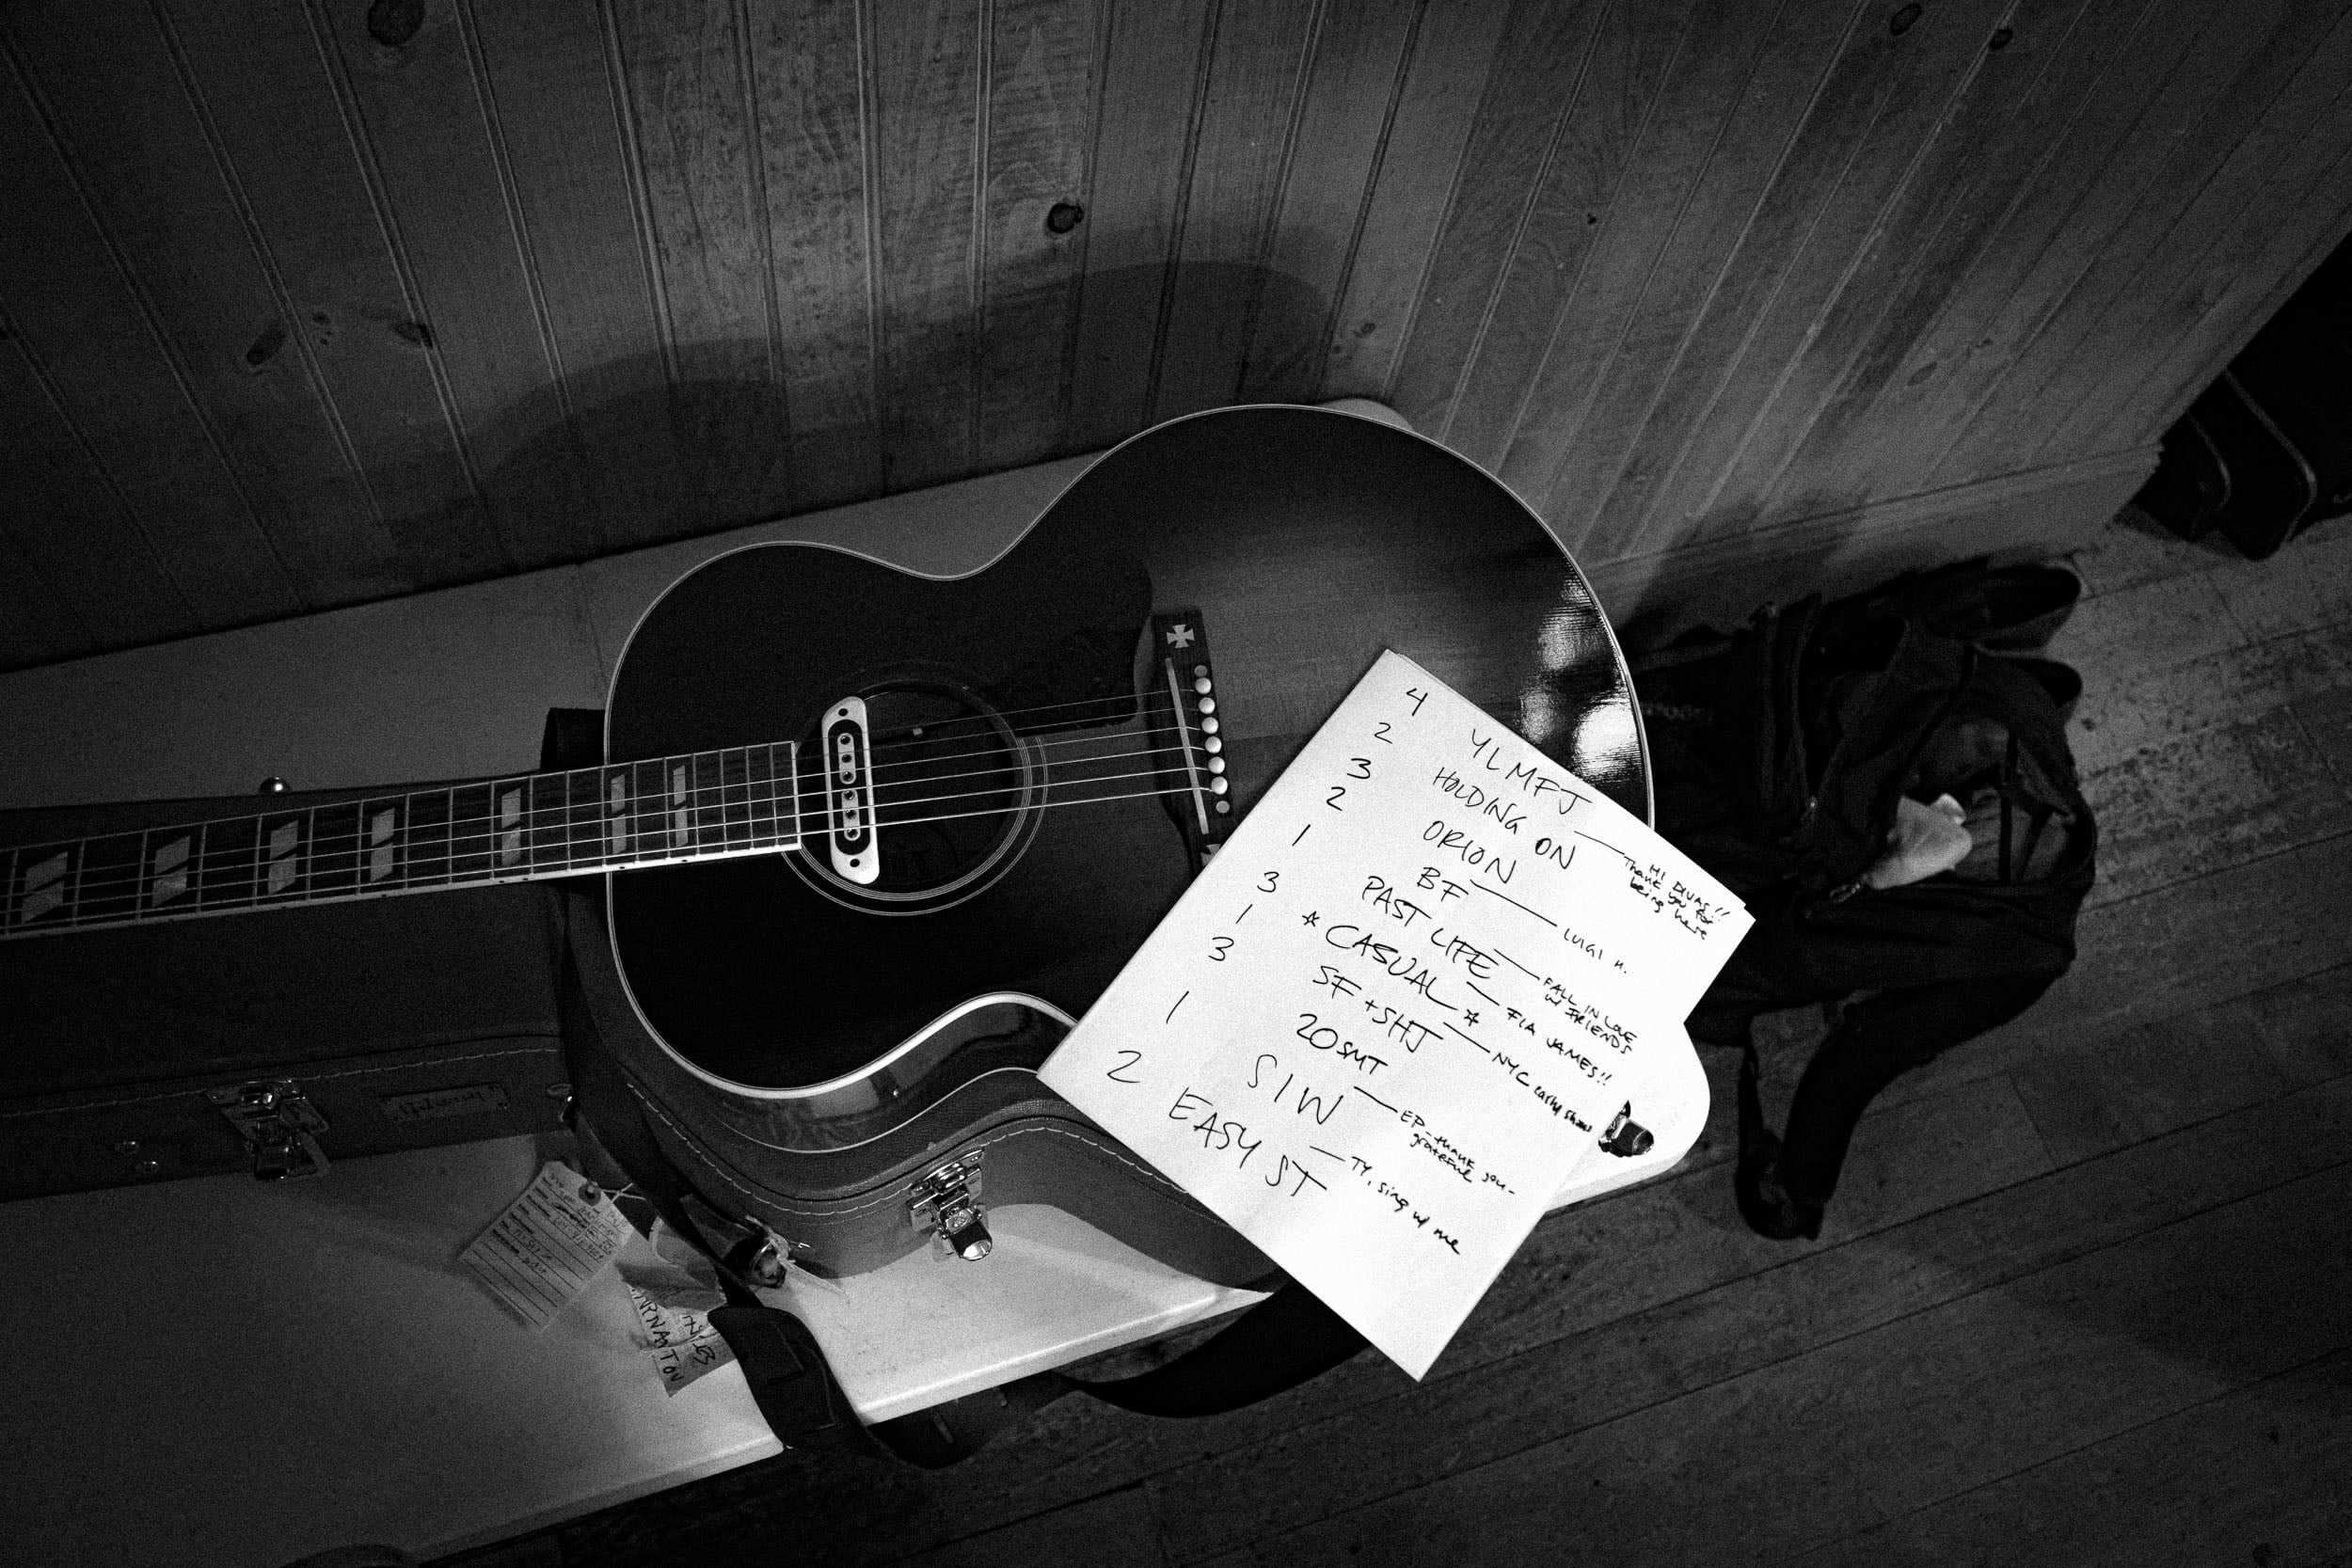 4 YLMFJ
2 HOLDING ON
HI DIVAS!!
Thank you for
being here
3 ORION
2 BF
LUIGI H.
1 PAST LIFE
FALL IN LOVE
w/ FRIENDS
3 *CASUAL*
FIA JAMES!!
1 SF + SHJ
NYC early show
3 20SMT
EP - thank you -
grateful
1 SIW
TY, sing w/ me
2 EASY ST